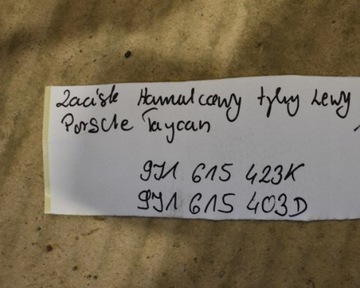 Zacisk Hamulcowy tylny Lewy
Porsche Taycan
9J1 615 423K
9J1 615 403D